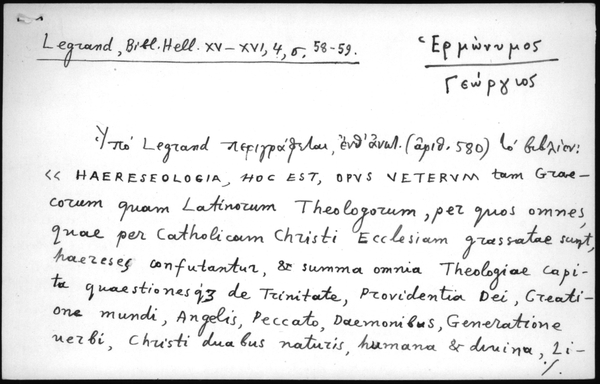 Legrand, Bibl. Hell. XV-XVI, 4, σ. 58-59.
Ἑρμώνυμος
Γεώργιος
Ὑπό Legrand περιγράφεται, ἐνθ' ἀνωτ. (ἀριθ. 580) τό βιβλίον:
<< HAERESEOLOGIA, HOC EST, OPVS VETERVM tam Grae-
corum quam Latinorum Theologorum, per quos omnes,
quae per Catholicam Christi Ecclesiam grassatae sunt,
haereses confutantur, & summa omnia Theologiae capi-
ta quaestionesqȝ de Trinitate, Providentia Dei, Creati-
one mundi, Angelis, Peccato, Daemonibus, Generatione
verbi, Christi duabus naturis, humana & divina, Li-
./.